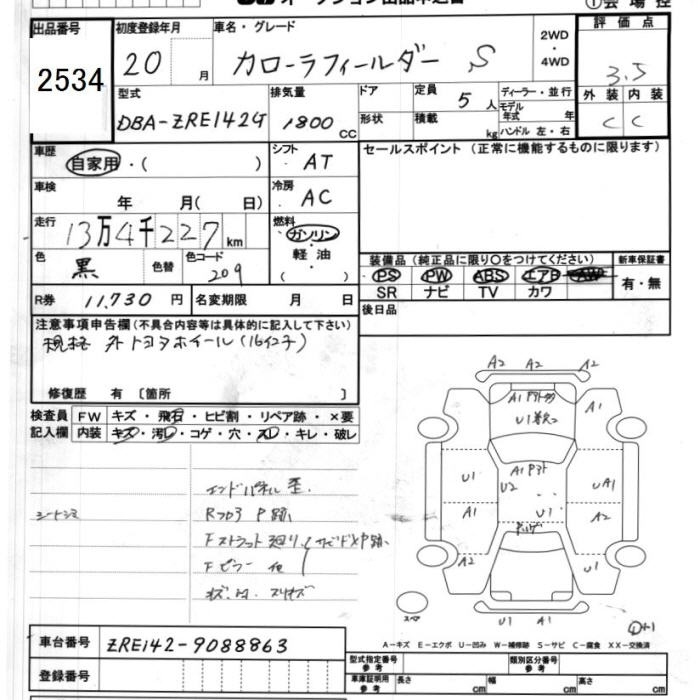 ①会場控
出品番号 初度登録年月 車名・グレード 2WD・4WD 評価点
2534 20 月 カローラフィールダー S 3.5
型式 排気量 ドア 定員 ディーラー・並行 外装 内装
DBA-ZRE142G 1800 CC 5 人 モデル年式 年 C C
形状 積載 kg ハンドル 左・右
車歴 自家用・( ) シフト AT セールスポイント (正常に機能するものに限ります)
車検 年 月( 日) 冷房 AC
走行 13万4千227 km 燃料 ガソリン
色 黒 色替 色コード 209 軽油 ( )
装備品 (純正品に限り○をつけてください) 新車保証書
PS PW ABS エアB AW 有・無
SR ナビ TV カワ
R券 11,730 円 名変期限 月 日 後日品
注意事項申告欄 (不具合内容等は具体的に記入して下さい)
規格外トヨタホイール(16インチ)
修復歴 有 〔箇所 〕
検査員 FW キズ・飛石・ヒビ割・リペア跡・×要
記入欄 内装 キズ・汚レ・コゲ・穴・スレ・キレ・破レ
A2 A2 A2
A1 A1
U1
U1 U2 A1 UA1
A1 U1 A2
A2 U1
エンドパネル歪.
シートシミ RフロアP跡
Fストラット廻り
Fピラー
スペア U1 A1
A-キズ E-エクボ U-凹み W-補修跡 S-サビ C-腐食 XX-交換済
車台番号 ZRE142-9088863
登録番号 型式指定番号 参考 類別区分番号 参考
車庫証明用 参考 長さ cm 幅 cm 高さ cm